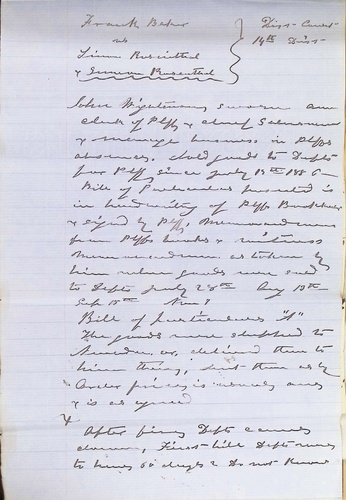 Frank Baker
vs
Simon Rosenthal
& Rosenthal
Dist. Court
14th Dist
John sworn am
clerk of Plffs & chief Salesman
& manage business in Plffs
absence. Sold goods to Defts
for Plff since July 13th 1886 —
Bill of Particulars presented is
in handwriting of Plffs Bookkeeper
& signed by Plff, Memorandum
from Plffs books & witness
memorandum as taken by
him when goods were sold
to Defts July 28th Aug 13th
Sep 15th Nov 8
Bill of particulars "A"
The goods were shipped to
or, delivered them to
him there, sent them as by
Order prices is usual ones
& is as agreed
X
After fire, Defts came
down, First bill Defts were
to have 60 days & Do not Know